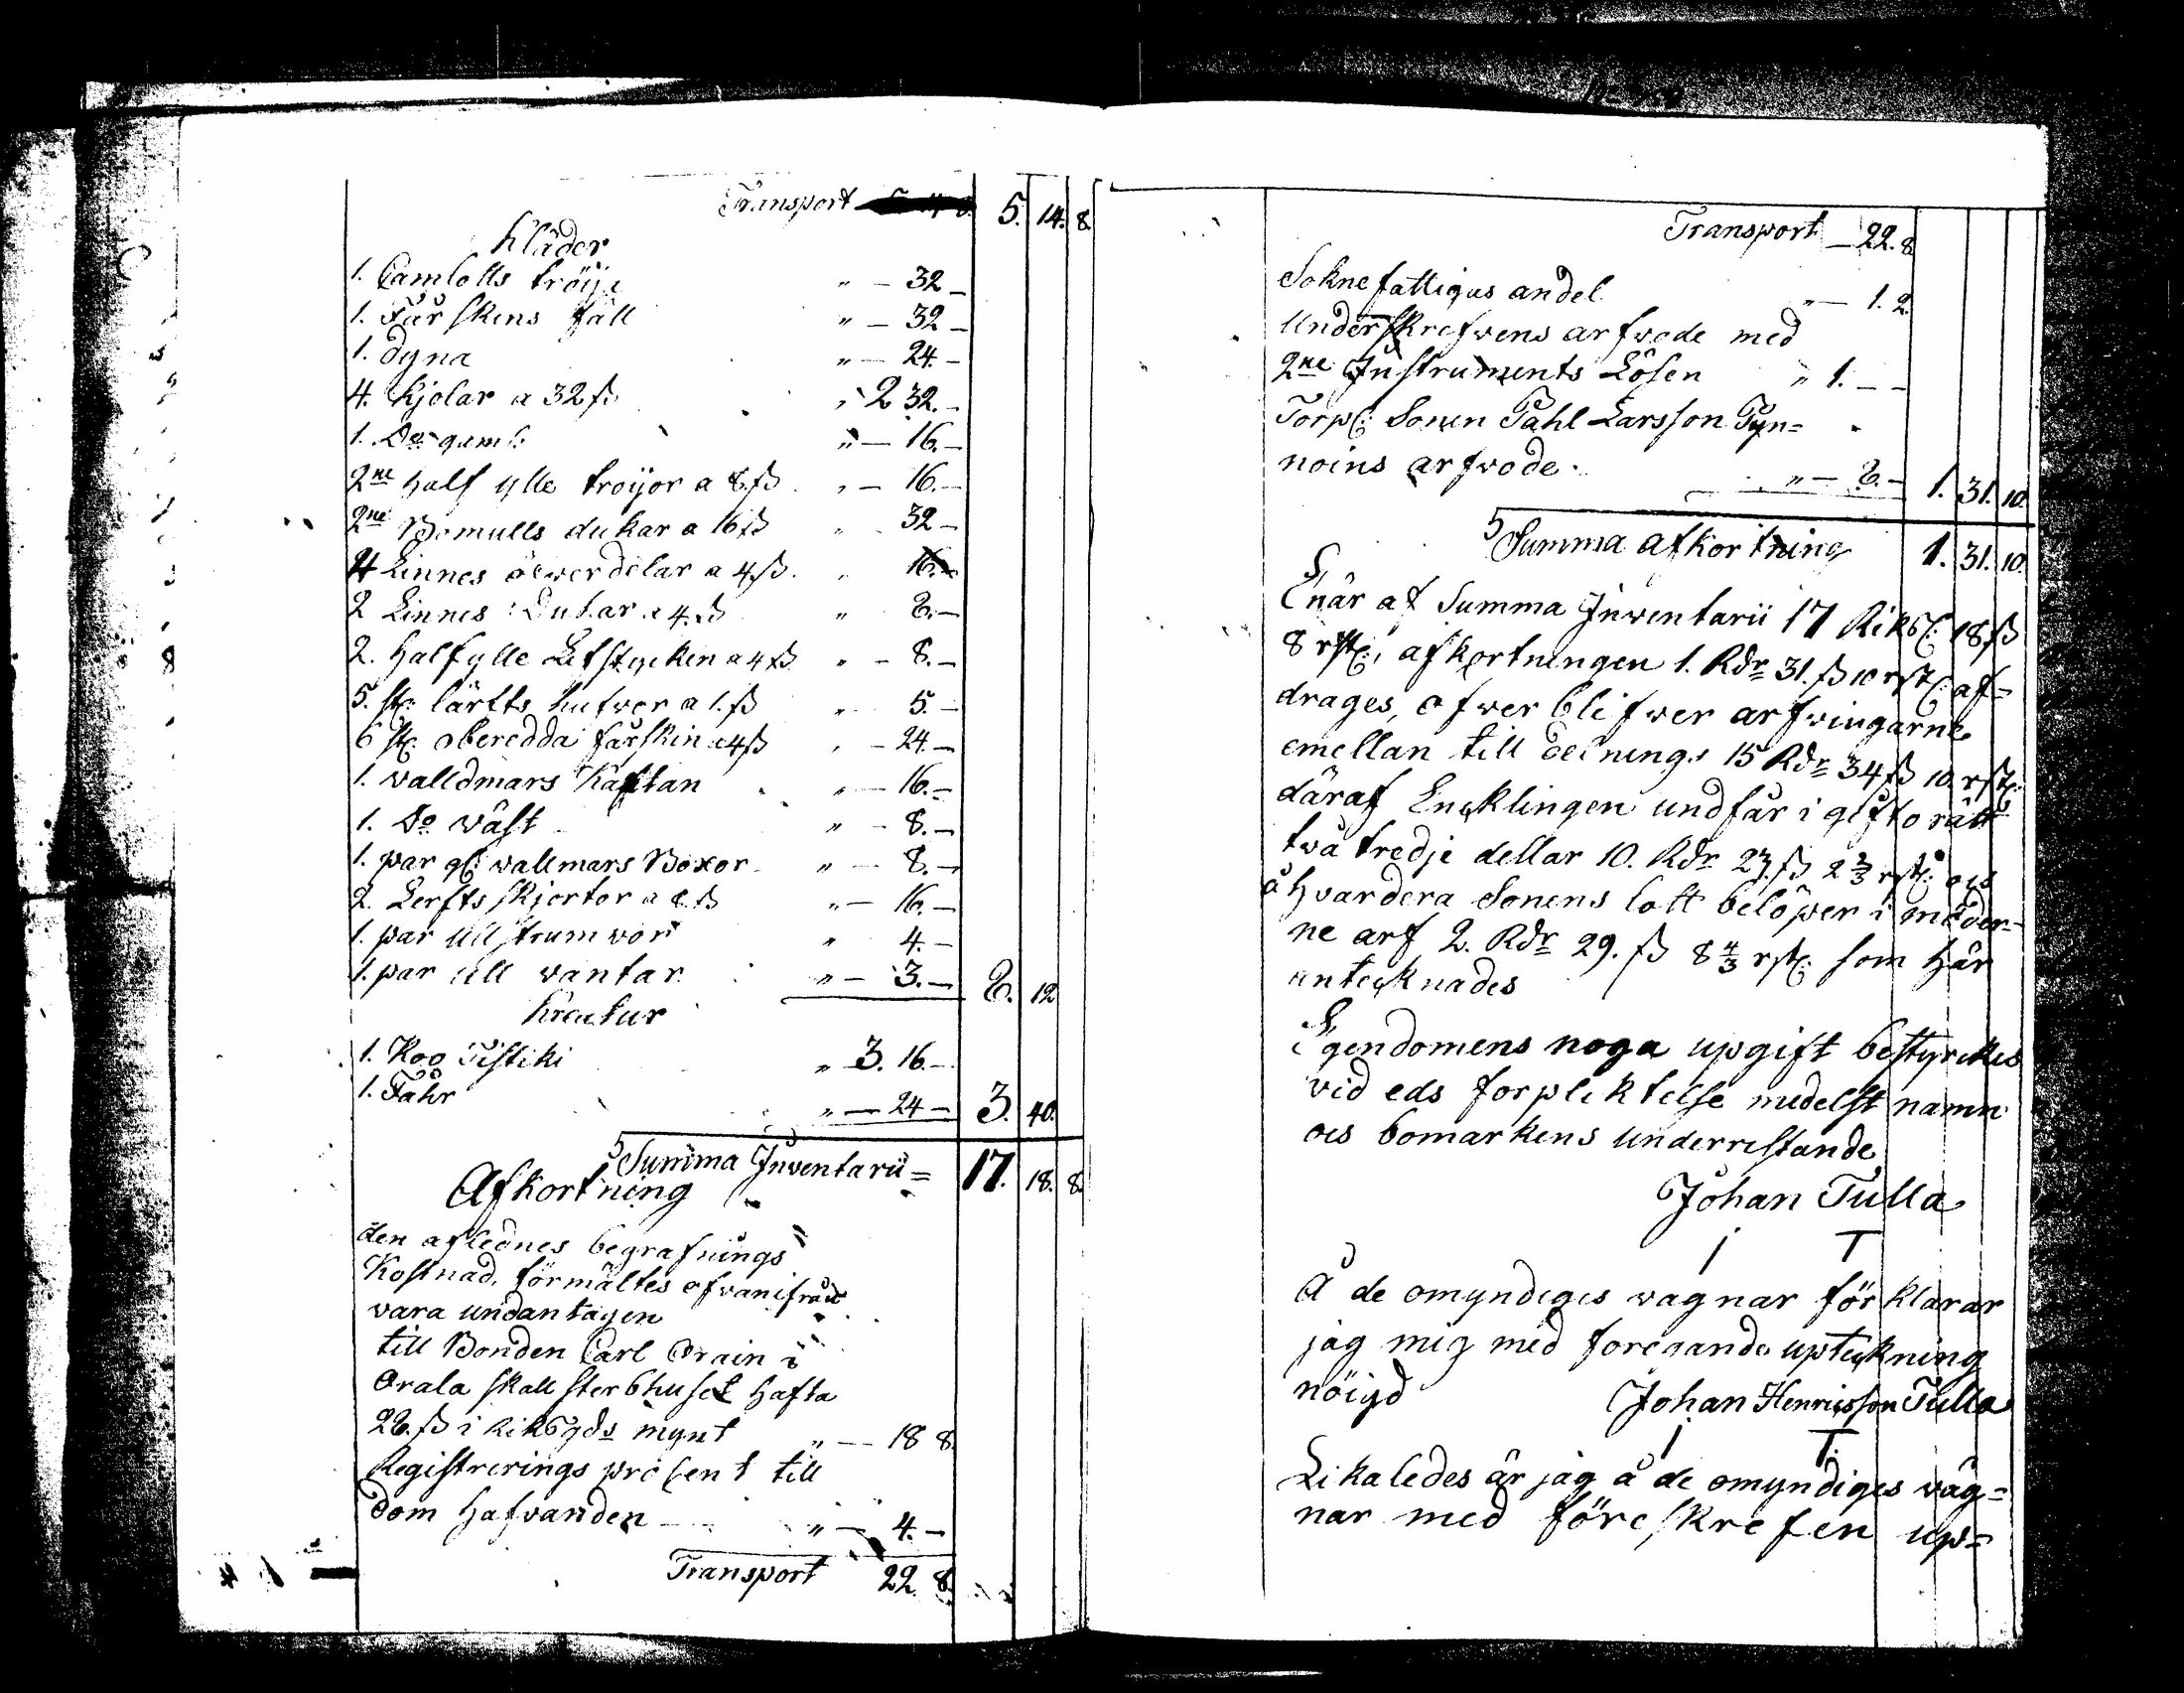 Transport 5. 14. 8
Kläder
1. Camlotts tröije " - 32 -
1. Får skins fäll " - 32 -
1. dyna " - 24. -
4. Kjolar a 32 ß " 2 32. -
1. Do gaml: " - 16. -
2ne Half ylle tröijor a 8 ß " - 16. -
2ne Bomulls dukar a 16 ß " 32 -
4 Linnes öfwerdelar a 4 ß. " 16. -
2 Linnes Dukar a 4 ß " 8. -
2. Halfylle Lifstycken a 4 ß " - 8. -
5. st: lärfts hufwor a 1. ß " 5. -
6 st: oberedda fårskin a 4 ß " - 24. -
1. valldmars Kaftan " - 16. -
1. Do väst " - 8. -
1. par gl: vallmars Boxor " - 8. -
2. Lerfts skjortor a 8 ß " - 16. -
1. par Ull strumpor " 4. -
1. par Ull vantar " - 3. - 8. 12
Kreatur
1. Koo Tistiki " 3. 16. -
1. Fåhr " - 24 - 3. 40.
Summa Inventarii = 17. 18. 8.
Afkortning
den aflednes begrafnings
Kostnad, förmältes ofvanifrån
vara undantagen
till Bonden Carl Orain i
Orala skall sterbhuset hafva
26. ß i Riksgds mynt " - 18 8.
Registrerings procent till
dom hafvanden " - 4. -
Transport 22. 8.
Transport - 22. 8
Sokne fattigas andel " - 1. 2.
Underskrefwens arfwode med
2ne Instruments Lösen " 1. - -
Torp: Sonen Påhl Larsson Pyn=
noins arfwode. " - 8. - 1. 31. 10.
Summa afkortning 1. 31. 10.
Enär af Summa Inventarii 17 Riks: 18 ß
8 rst:, afkortningen 1. Rdr 31. ß 10 rst: af=
drages, ofwer blifwer arfwingarne
emellan till delnings 15 Rdr 34 ß 10. rst:
däraf Encklingen undfår i giftorätt
två tredje dellar 10. Rdr 23. ß 2 2/3 rst: ocs
å hvardera Sonens lott belöper i möder-
ne arf 2. Rdr 29. ß 8 4/3 rst: som här
antecknades
Egendomens noga upgift bestyrckes
vid eds forpliktelse medelst namn
ocs bomarkens underrestande
Johan Tulla
I T
Å de omyndiges vagnar förklarar
jag mig med foregande upteckning
nöigd Johan Henricsson Tulla
I T.
Likaledes är jag å de omyndiges väg=
nar med föreskrefen up=